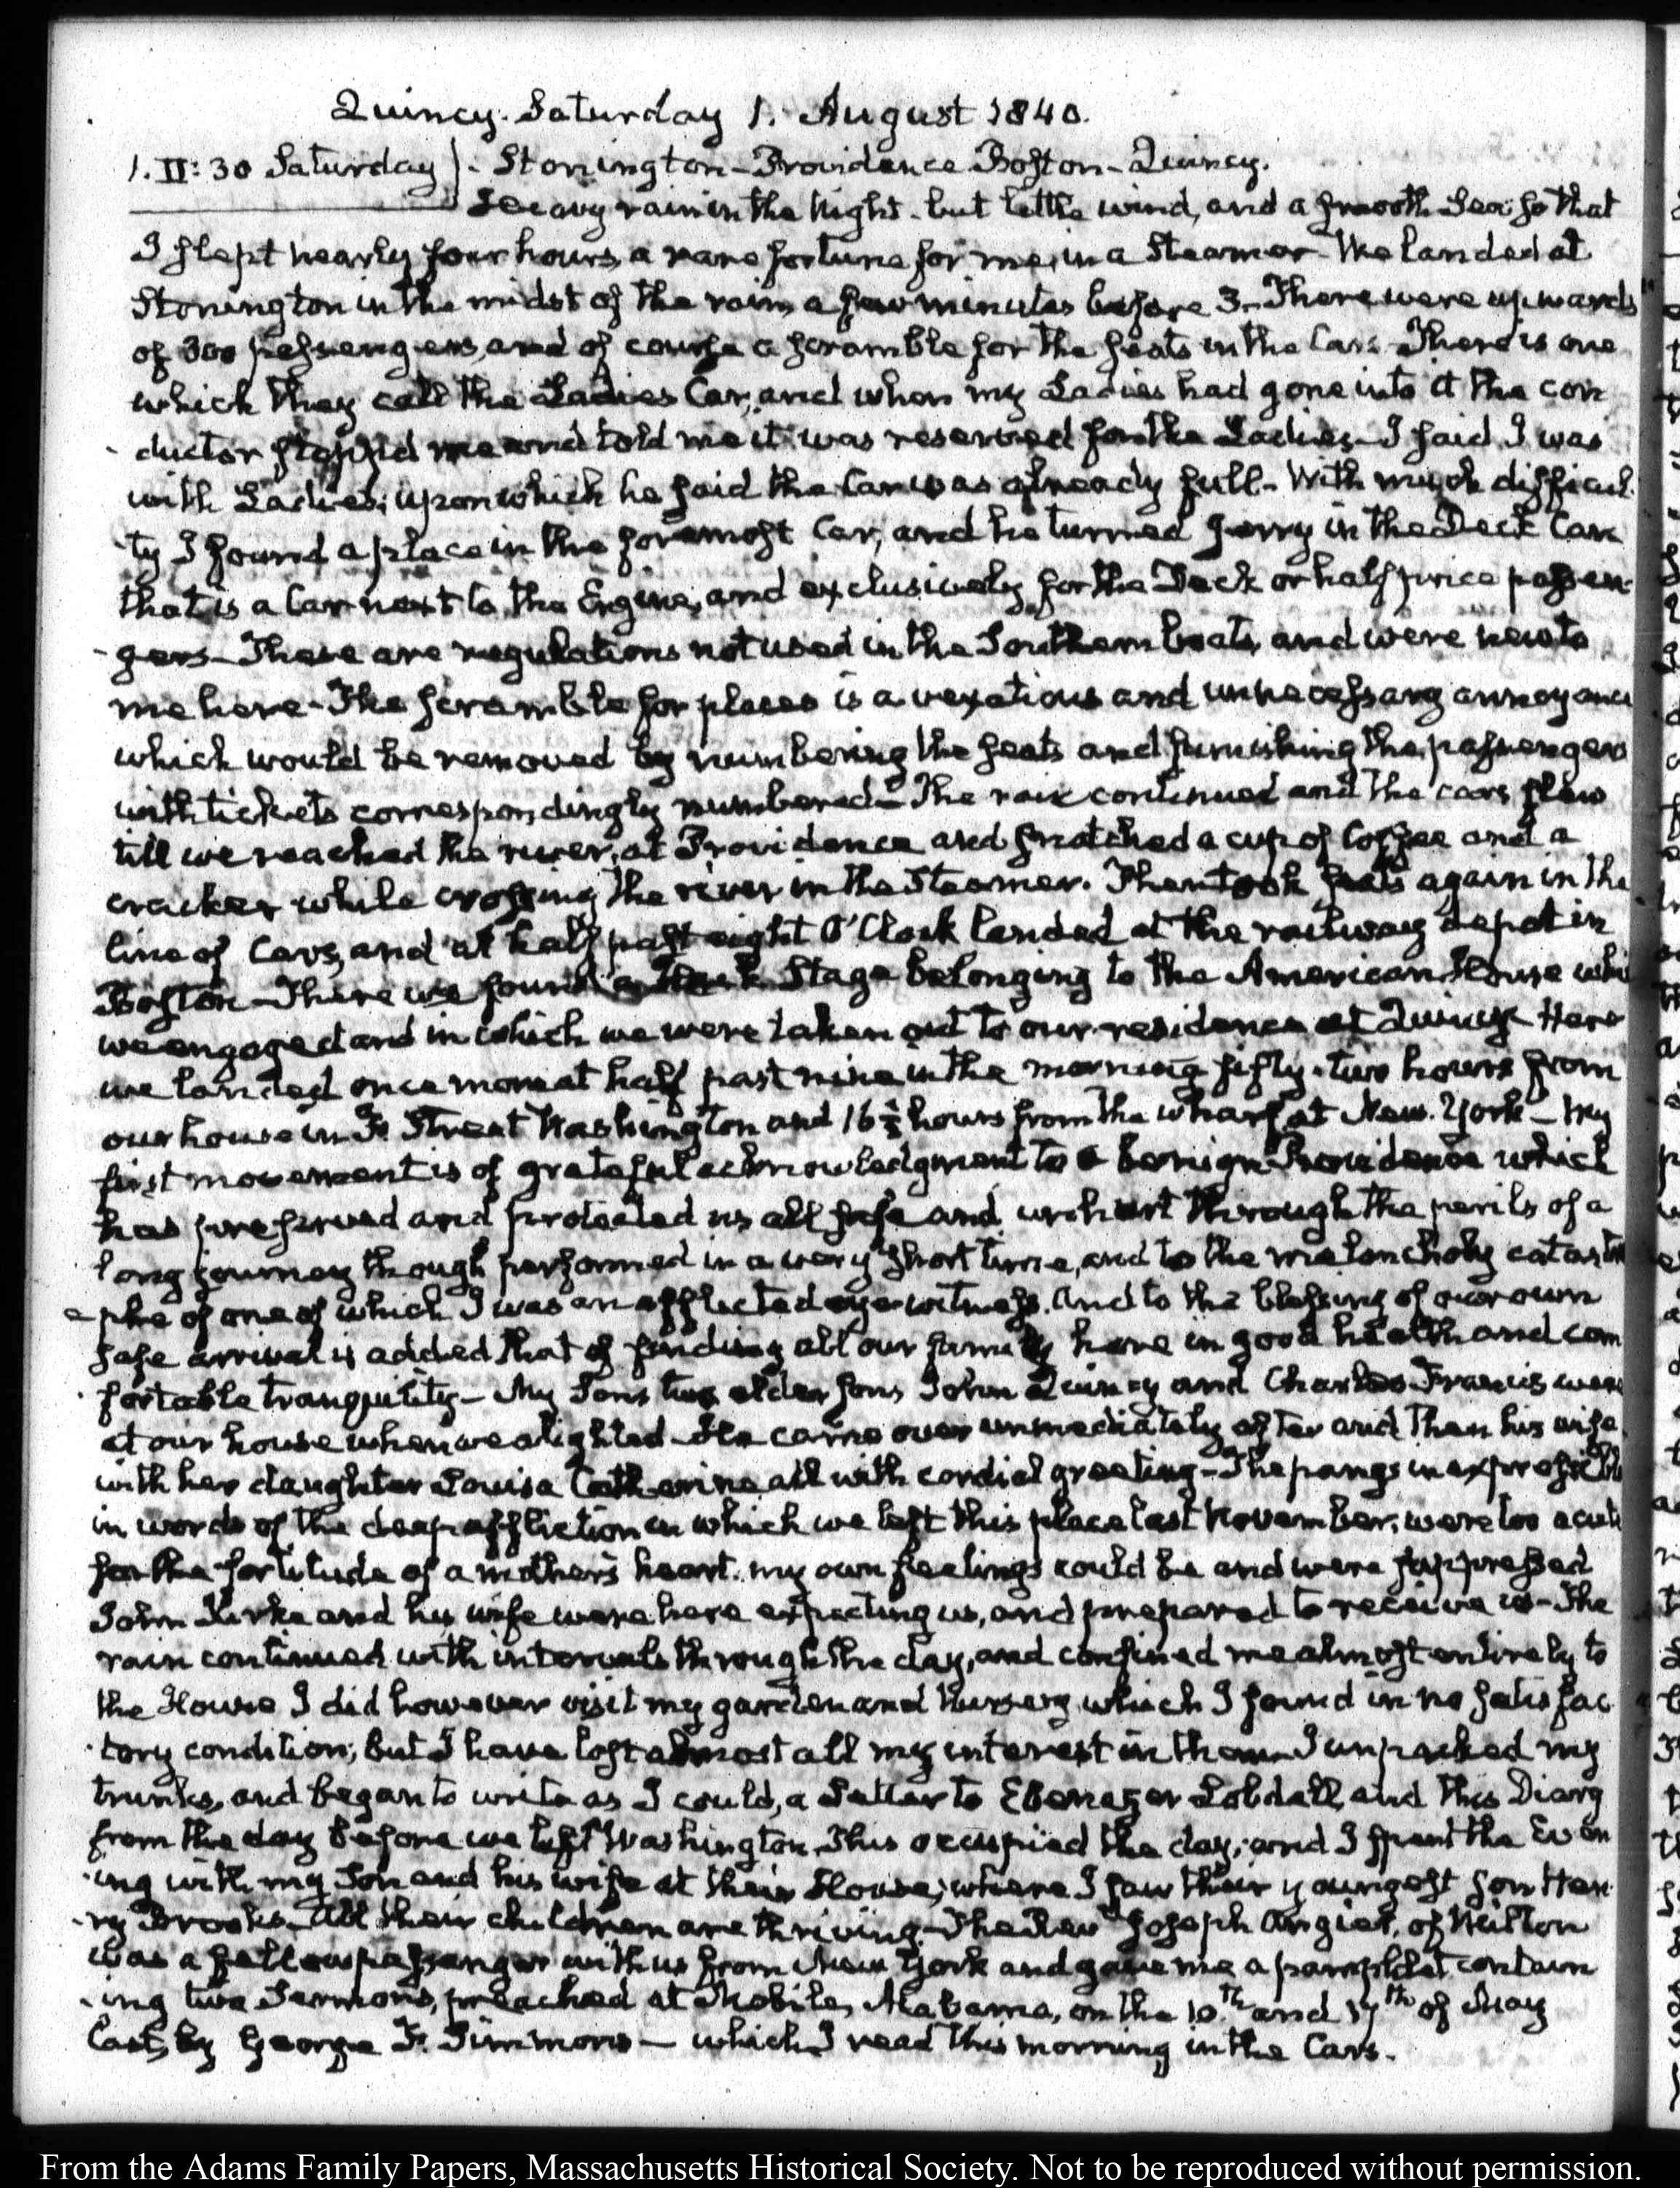 Quincy. Saturday 1. August 1840.
1. II: 30 Saturday). Stonington-Providence Boston-Quincy.
Heavy rain in the Night. but little wind, and a smooth Sea so that
I slept nearly four hours, a rare fortune for me, in a Steamer. We landed at
Stonington in the midst of the rain, a few minutes before 3. There were upwards
of 300 passengers, and of course a scramble for the seats in the Cars. There is one
which they call the Ladies Car, and when my Ladies had gone into it the con
ductor stopp'd me and told me it was reserved for the Ladies. I said I was
with Ladies; upon which he said the Car was already full. With much difficul
ty I found a place in the foremost Car, and he turned Jerry in the Deck Car
that is a Car next to the Engine, and exclusively for the Deck or half price passen
gers. These are regulations not used in the Southern boats, and were new to
me here. The scramble for places is a vexatious and unnecessary annoyance
which would be removed by numbering the seats and furnishing the passengers
with tickets correspondingly numbered. The rain continued and the cars flew
till we reached the river, at Providence and snatched a cup of Coffee and a
cracker while crossing the river in the Steamer. Then took seats again in the
line of Cars, and at half past eight O'Clock landed at the railway depot in
Boston. There we found a Stage belonging to the American House which
we engaged and in which we were taken out to our residence at Quincy. Here
we landed once more at half past nine in the morning fifty-two hours from
our house in F. Street Washington and 16½ hours from the wharf at New-York. My
first movement is of grateful acknowledgment to a benign Providence which
has preserved and protected us all safe and unhurt through the perils of a
long journey though performed in a very short time, and to the melancholy catastro
phe of one of which I was an afflicted eye-witness. And to the blessing of our own
safe arrival is added that of finding all our family here in good health and com
fortable tranquility. My Sons two elder sons John Quincy and Charles Francis were
at our house when we alighted. He came over immediately after and then his wife
with her daughter Louisa Catherine all with cordial greeting. The pangs inexpressible
in words of the deep affliction in which we left this place last November, were too acute
for the fortitude of a mother's heart. my own feelings could be and were suppressed
John Kirke and his wife were here expecting us, and prepared to receive us. The
rain continued with intervals through the day, and confined me almost entirely to
the House I did however visit my garden and Nursery which I found in no satisfac
tory condition; but I have lost almost all my interest in them. I unpacked my
trunks, and began to write as I could, a Letter to Ebenezer Lobdell, and this Diary
from the day before we left Washington. This occupied the day; and I spent the Even
ing with my Son and his wife at their House; where I saw their youngest son Hen
ry Brooks. All their children are thriving. The Revd Joseph Angier, of Milton
was a fellow passenger with us from New York and gave me a pamphlet contain
ing two Sermons, preached at Mobile, Alabama, on the 10th and 17th of May
last, by George F. Simmons — which I read this morning in the Cars.
From the Adams Family Papers, Massachusetts Historical Society. Not to be reproduced without permission.